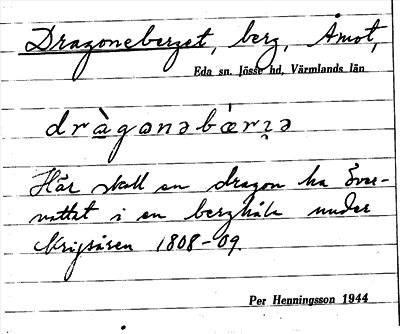 Dragoneberget, berg, Åmot,
Eda sn. Jösse hd, Värmlands län
dràgɷnəbæ̀rɪ̯ə
Här skall en dragon ha över-
nattat i en berghåla under
krigsåren 1808-09.
Per Henningsson 1944